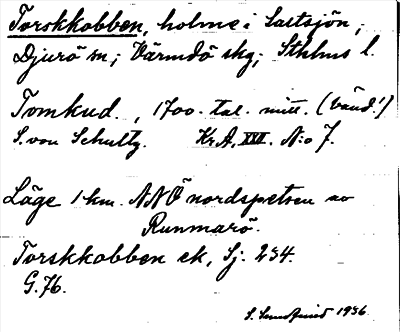 Torskkobben, holme i Saltsjön,
Djurö sn; Värmdö skg; Sthlms l.
Tomkud. , 1700-tal. mitt. (bäud!)
S. von Schultz. Kr.A. XVI. N:o 7.
Läge 1 km. NNÖ nordspetsen av
Runmarö.
Torskkobben ek, Sj. 234.
G. 76.
S. 1936